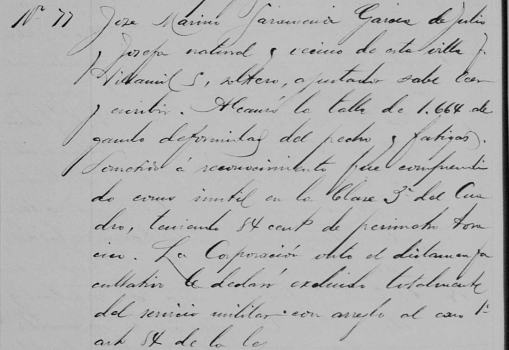 Nº 77 Jose Marino Garcia de Julio
y Josefa natural y vecino de esta villa y
Villamil 5, soltero, ajustador sabe leer
y escribir. Alcanzó la talla de 1.664 ale
gando deformidad del pecho y fatigas.
Sometido á reconocimiento fue comprendi
do como inutil en la Clase 3ª del Cua
dro, teniendo 84 cent de perimetro tora
cico. La Corporación visto el dictamen fa
cultativo le declaró excluido totalmente
del servicio militar con arreglo al caso 1º
art 84 de la le